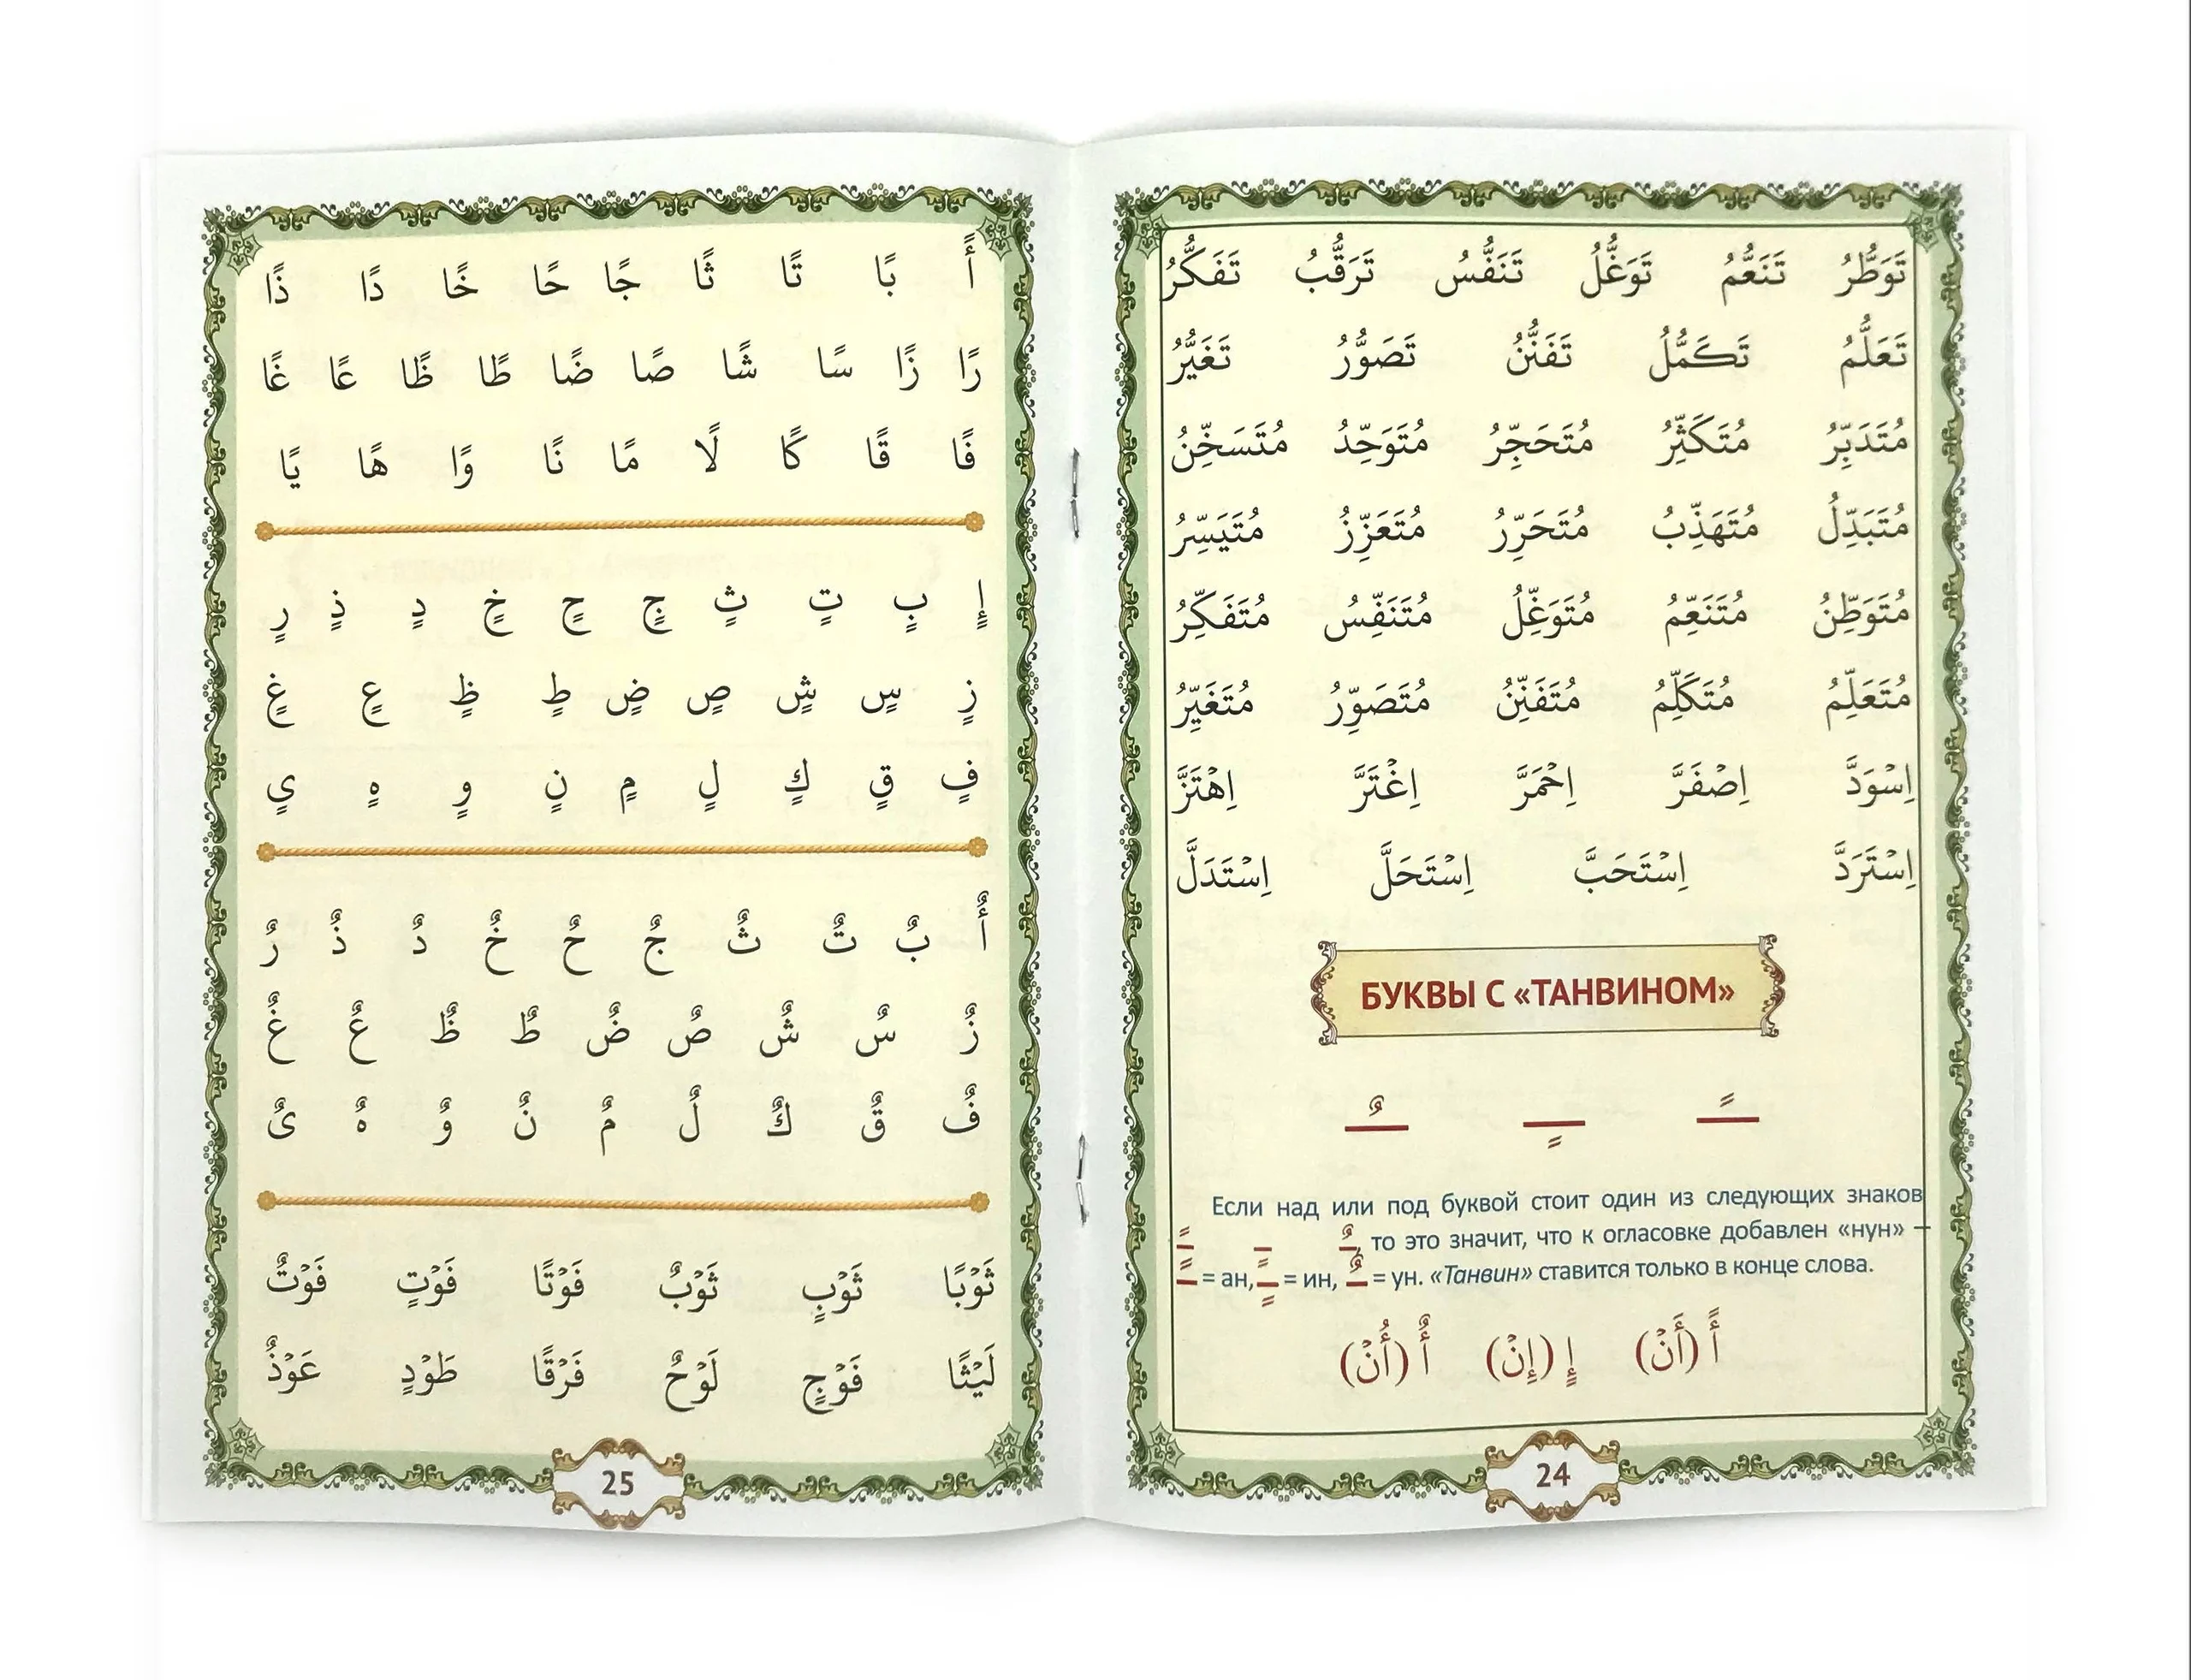 تَوَطُّرُ تَنَعُّمُ تَوَغُّلُ تَنَفُّسُ تَرَقُّبُ تَفَكُّرُ
تَعَلَّمُ تَكَمُّلُ تَفَنُّنُ تَصَوُّرُ تَغَيُّرُ
مُتَدَبِّرُ مُتَكَثِّرُ مُتَحَجِّرُ مُتَوَحِّدُ مُتَسَخِّنُ
مُتَبَدِّلُ مُتَهَذِّبُ مُتَحَرِّرُ مُتَعَزِّزُ مُتَيَسِّرُ
مُتَوَطِّنُ مُتَنَعِّمُ مُتَوَغِّلُ مُتَنَفِّسُ مُتَفَكِّرُ
مُتَعَلِّمُ مُتَكَلِّمُ مُتَفَنِّنُ مُتَصَوِّرُ مُتَغَيِّرُ
اِسْوَدَّ اِصْفَرَّ اِحْمَرَّ اِغْتَرَّ اِهْتَزَّ
اِسْتَرَدَّ اِسْتَحَبَّ اِسْتَحَلَّ اِسْتَدَلَّ
БУКВЫ С «ТАНВИНОМ»
ـً ـٍ ـٌ
Если над или под буквой стоит один из следующих знаков
ـً ـٍ ـٌ, то это значит, что к огласовке добавлен «нун» –
ـً = ан, ـٍ = ин, ـٌ = ун. «Танвин» ставится только в конце слова.
أً (أَنْ) إٍ (إِنْ) أٌ (أُنْ)
24
أً بًا تًا ثًا جًا حًا خًا دًا ذًا
رًا زًا سًا شًا صًا ضًا طًا ظًا عًا غًا
فًا قًا كًا لًا مًا نًا وًا هًا يًا
إٍ بٍ تٍ ثٍ جٍ حٍ خٍ دٍ ذٍ رٍ
زٍ سٍ شٍ صٍ ضٍ طٍ ظٍ عٍ غٍ
فٍ قٍ كٍ لٍ مٍ نٍ وٍ هٍ يٍ
أٌ بٌ تٌ ثٌ جٌ حٌ خٌ دٌ ذٌ رٌ
زٌ سٌ شٌ صٌ ضٌ طٌ ظٌ عٌ غٌ
فٌ قٌ كٌ لٌ مٌ نٌ وٌ هٌ ىٌ
ثَوْبًا ثَوْبٍ ثَوْبٌ فَوْتًا فَوْتٍ فَوْتٌ
لَيْثًا فَوْجٍ لَوْحٌ فَرْقًا طَوْدٍ عَوْذٌ
25